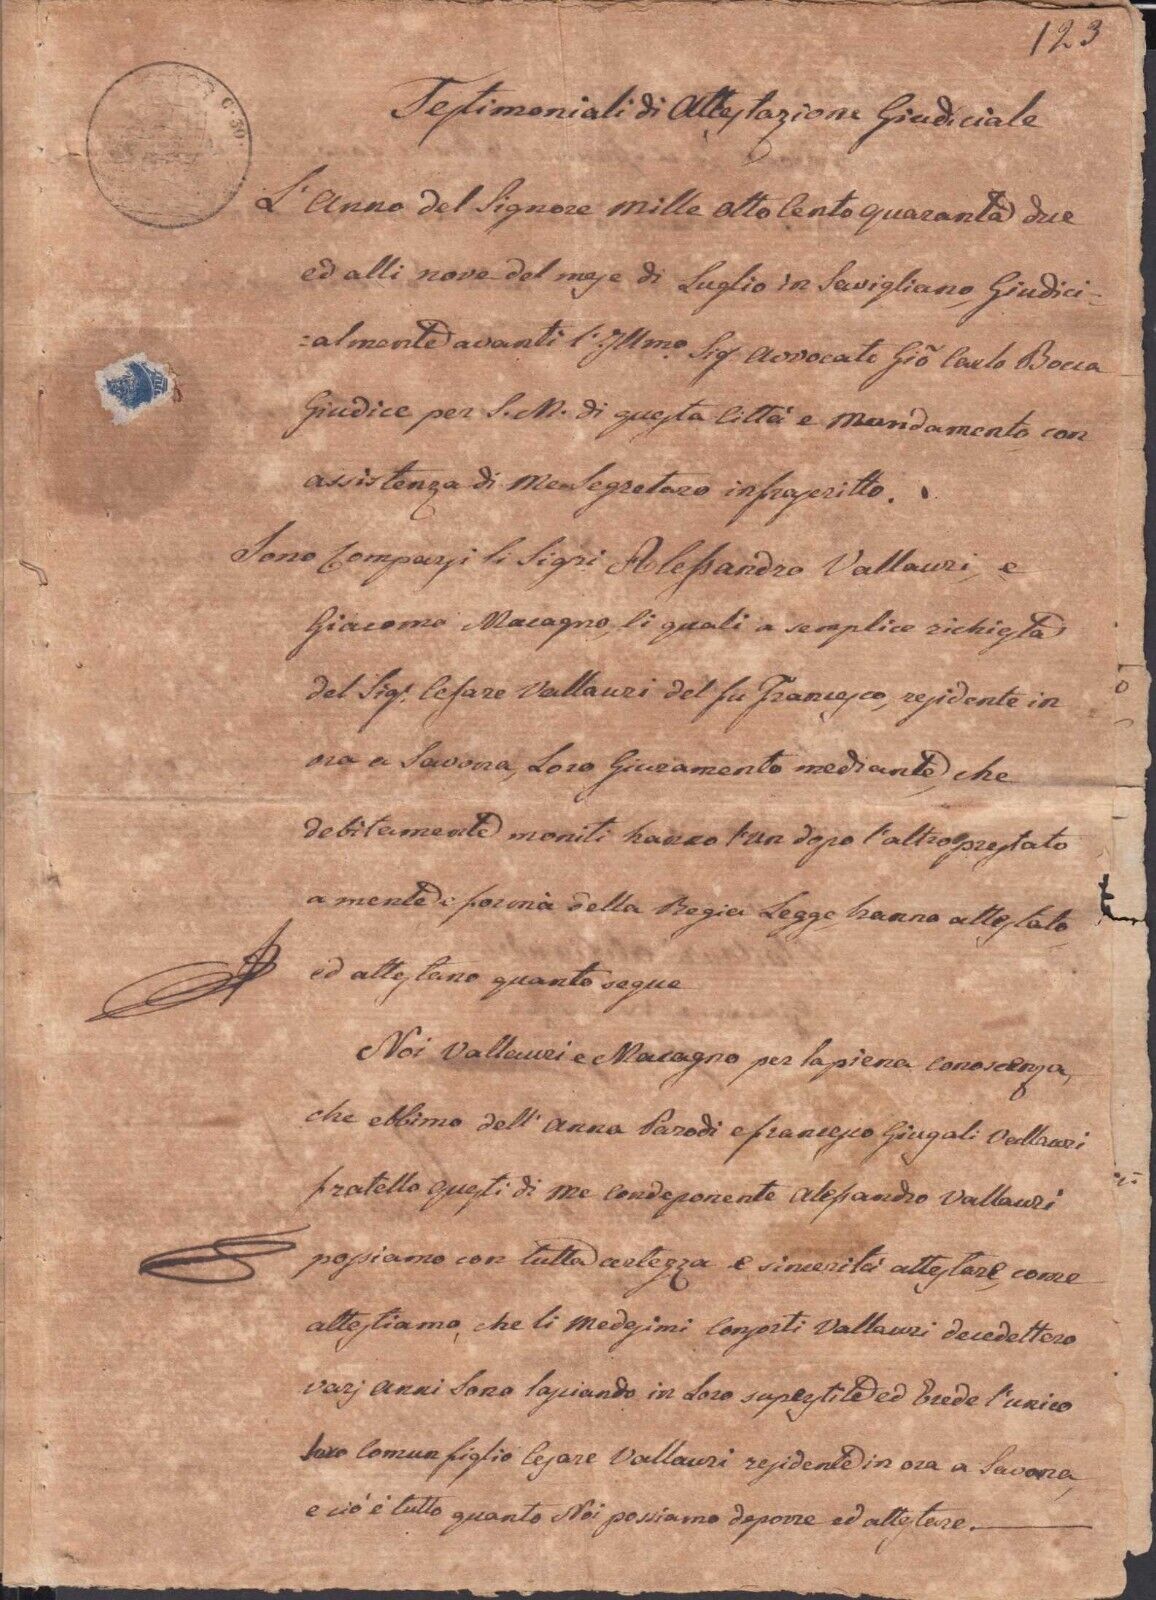 123
C. 50.
Testimoniali di Attestazione Giudiciale
L'Anno del Signore mille otto Cento quaranta due
ed alli nove del mese di Luglio in Savigliano, Giudici=
=almente avanti l'Illmo. Sigr. Avvocato Gio Carlo Bocca
Giudice per S. M. di questa Città e Mandamento con
assistenza di me Segretaro infrascritto.
Sono Comparsi li Sigri. Alessandro Vallauri, e
Giacomo Macagno, li quali a semplice richiesta
del Sigr. Cesare Vallauri del fu Francesco, residente in
ora a Savona, Loro Giuramento mediante, che
debitamente moniti hanno l'un dopo l'altro prestato
a mente e forma della Regia Legge, hanno attestato
ed attestano quanto segue
Noi Vallauri e Macagno per la piena conoscenza,
che ebbimo dell'Anna Parodi e francesco Giugali Vallauri
fratello questi di me condeponente Alessandro Vallauri
possiamo con tutta certezza e sincerità attestare, come
attestiamo, che li medesimi Consorti Vallauri decedettero
varj anni sono lasciando in Loro superstite ed Erede l'unico
loro Comun figlio Cesare Vallauri residente in ora a Savona,
e ciò è tutto quanto Noi possiamo deporre ed attestare.